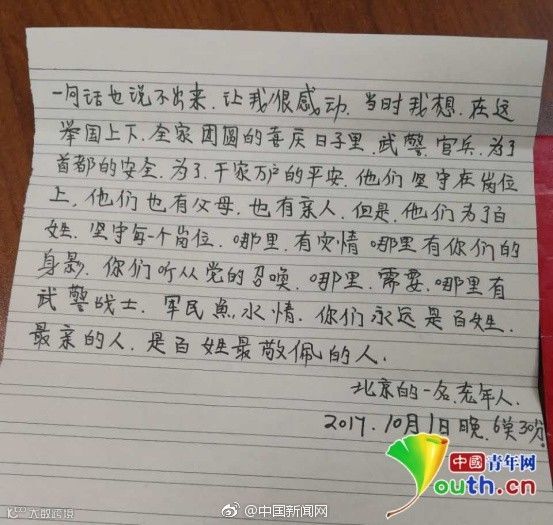 一句话也说不出来.让我很感动.当时我想.在这
举国上下.全家团圆的喜庆日子里.武警.官兵.为了
首都的安全.为了.千家万户的平安.他们坚守在岗位
上.他们也有父母.也有亲人.但是.他们为了百
姓.坚守每一个岗位.哪里.有灾情哪里有你们的
身影.你们听从党的召唤.哪里.需要.哪里有
武警战士.军民鱼水情.你们永远是百姓.
最亲的人.是百姓最敬佩的人.
北京的一名.老年人.
2017.10月1日晚.6关30分.
中國青年网
youth.cn
@中国新闻网
大皖跨境